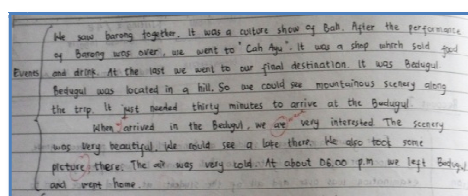 We saw barong together. It was a culture show of Bali. After the performance
of Barong was over, we went to "Cah Ayu". It was a shop which sold food
Events and drink. At the last we went to our final destination. It was Bedugul
Bedugul was located in a hill. So we could see mountainous scenery along
the trip. It just needed thirty minutes to arrive at the Bedugul.
When arrived in the Bedugul, we are very interested. The scenery
was very beautiful. We could see a lake there. We also took some
picture there. The air was very cold. At about 06.00 p.m we left Bedugul
and went home.